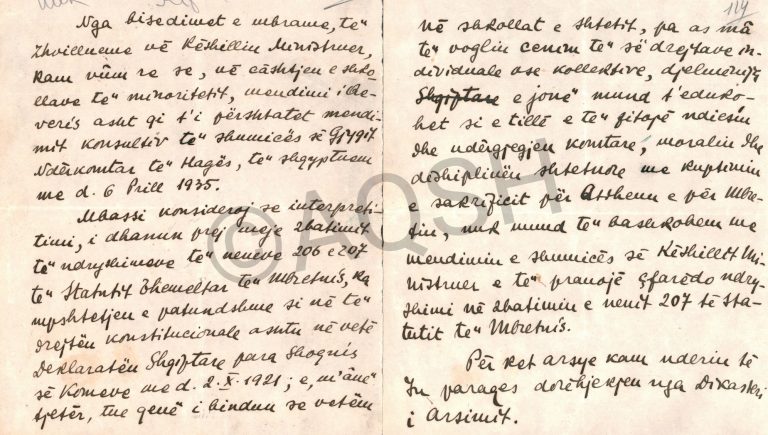 119
Nga bisedimet e mbrame, të
zhvillueme në Këshillin Ministruer,
kam vûm re se, në çâshtjen e shko-
llave të minoritetit, mendimi i Qe-
veris asht qi t'i përshtatet mendi-
mit konsultiv të shumicës së Gjygjit
Ndërkomtar të Hagës, të shqyptuem
me d. 6 Prill 1935.
Mbassi konsideroj se interpreti-
timi, i dhanun prej meje zbatimit
të ndryshimeve të neneve 206 e 207
të Statutit Themeltar të Mbretnis, ka
mpshtetjen e patundshme si në të
drejtën konstitucionale ashtu në vetë
Deklaratën Shqiptare para Shoqnis
së Komeve me d. 2.X.1921; e, m'ânë
tjetër, tue qenë i bindun se vetëm
në shkollat e shtetit, pa as mâ
të voglin cenim të së drejtave in-
dividuale ose kollektive, djelmënija
Shqiptare e jonë mund t'eduko-
het si e tillë e të fitojë ndiesin
dhe ndërgjegjen komtare, moralin dhe
dishiplinën shtetnore me kuptimin
e sakrificit për Atdheun e për Mbre-
tin, nuk mund të bashkohem me
mendimin e shumicës së Këshillit Mi-
nistruer e të pranojë çfarëdo ndry-
shimi në zbatimin e nenit 207 të Sta-
tutit të Mbretnis.
Për ket arsye kam nderin të
Ju paraqes dorëhjekjen nga Dikasteri
i Arsimit.
©AQSH